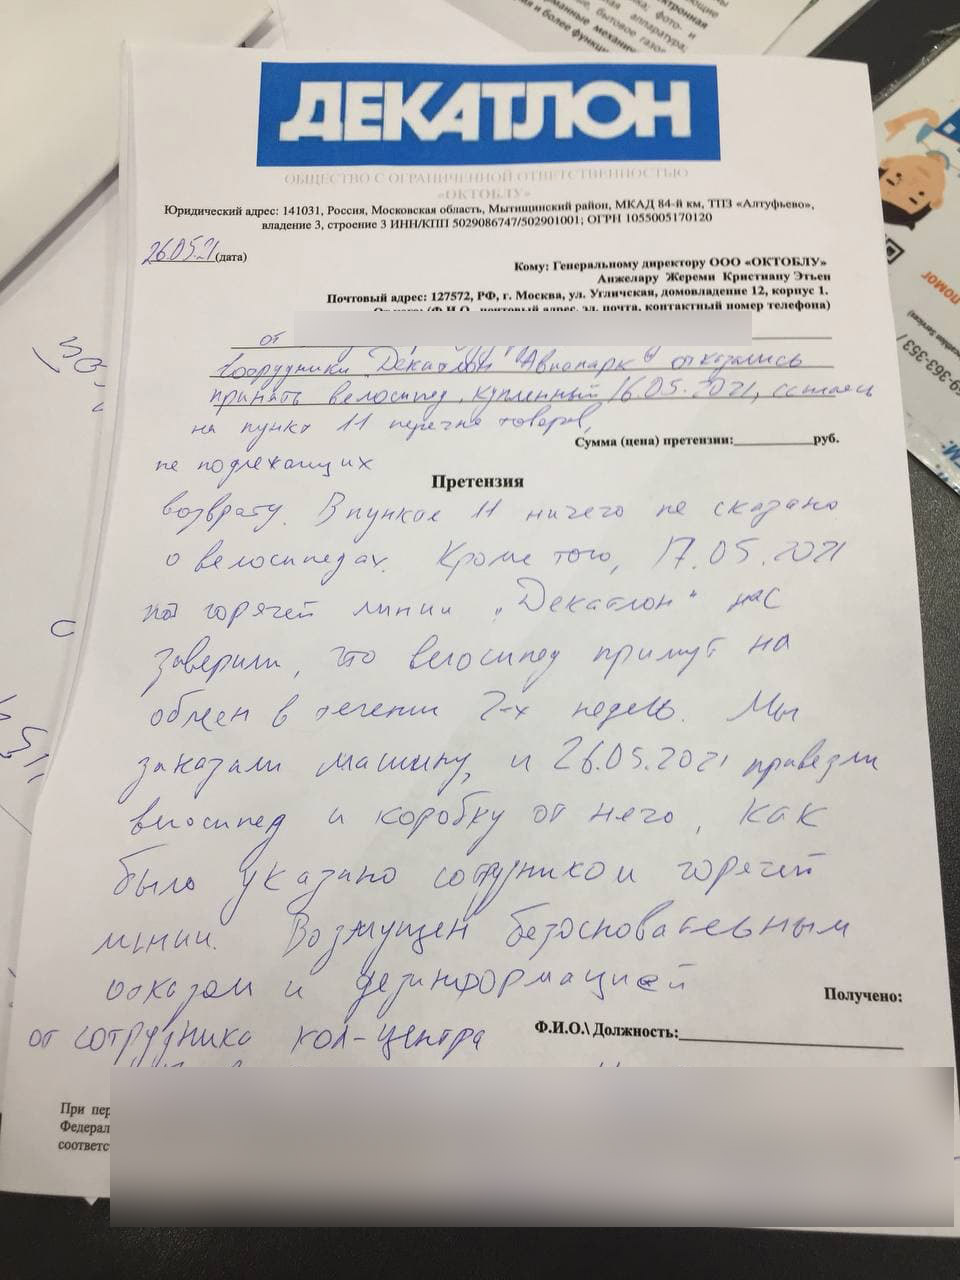 ДЕКАТЛОН
ОБЩЕСТВО С ОГРАНИЧЕННОЙ ОТВЕТСТВЕННОСТЬЮ
«ОКТОБЛУ»
Юридический адрес: 141031, Россия, Московская область, Мытищинский район, МКАД 84-й км, ТПЗ «Алтуфьево»,
владение 3, строение 3 ИНН/КПП 5029086747/502901001; ОГРН 1055005170120
26.05.21 (дата)
Кому: Генеральному директору ООО «ОКТОБЛУ»
Анжелару Жереми Кристиану Этьен
Почтовый адрес: 127572, РФ, г. Москва, ул. Угличская, домовладение 12, корпус 1.
От кого: (Ф.И.О., почтовый адрес, эл. почта, контактный номер телефона)
от
Сотрудники "Декатлон "Авиапарк" отказались
принять велосипед, купленный 16.05.2021, ссылаясь
на пункт 11 перечня товаров,
Сумма (цена) претензии:__________руб.
не подлежащих
Претензия
возврату. В пункте 11 ничего не сказано
о велосипедах. Кроме того, 17.05.2021
по горячей линии „Декатлон" нас
заверили, что велосипед примут на
обмен в течении 2-х недель. Мы
заказали машину, и 26.05.2021 привезли
велосипед и коробку от него, как
было указано сотрудником горячей
линии. Возмущен безосновательным
отказом и дезинформацией
Получено:
от сотрудника кол-центра
Ф.И.О.\ Должность:
При пер
Федерал
соответс